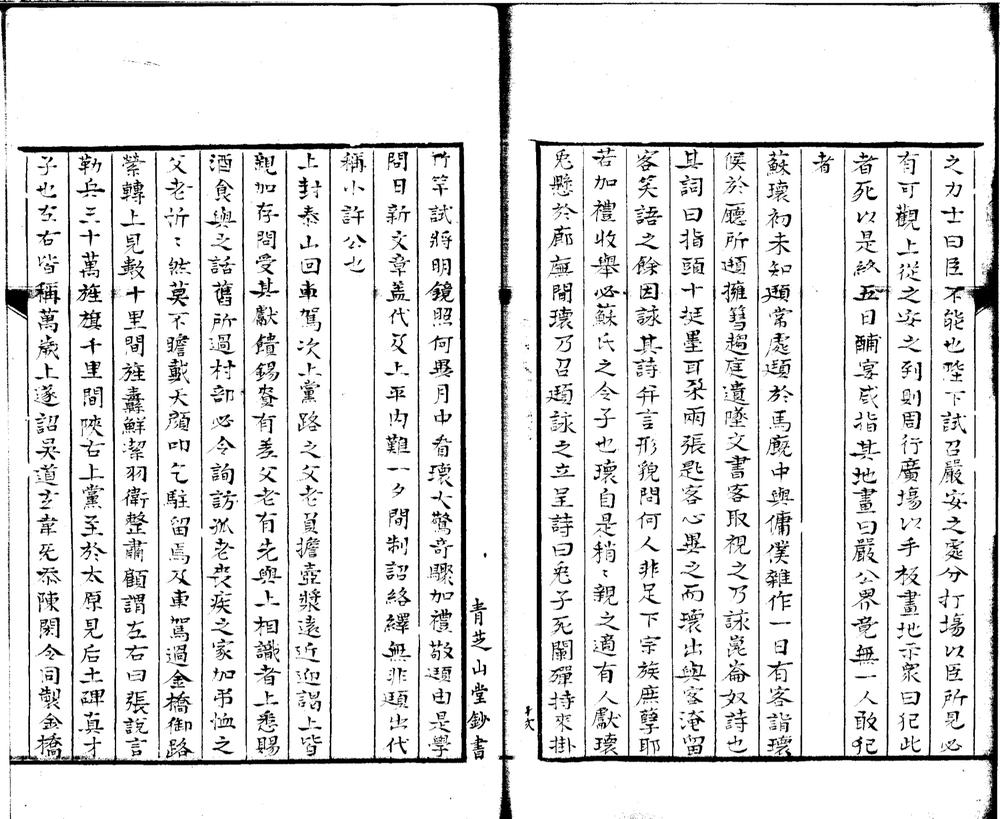 之力士曰臣不能也陛下試召嚴安之處分打場以臣所見必
有可觀上從之安之到則周行廣場以手板畫地示衆曰犯此
者死以是終五日酺宴咸指其地畫曰嚴公界竟無一人敢犯
者
蘇瓌初未知頲常處頲於馬廐中與傭僕雜作一日有客詣瓌
候於廳所頲擁篲趨庭遺墜文書客取視之乃詠崑崙奴詩也
其詞曰指頭十挺墨耳朶兩張匙客心異之而瓌出與客淹留
客笑語之餘因詠其詩并言形貌問何人非足下宗族庶孽耶
若加禮收舉必蘇氏之令子也瓌自是稍〻親之適有人獻瓌
兎懸於廊廡間瓌乃召頲詠之立呈詩曰兎子死闌殫持來掛
竹竿試將明鏡照何異月中看瓌大驚奇驟加禮敬頲由是學
問日新文章盖代及上平内難一夕間制詔絡繹無非頲出代
稱小許公也
上封泰山回車駕次上黨路之父老負擔壺漿遠近迎謁上皆
親加存問受其獻饋錫賚有差父老有先與上相識者上悉賜
酒食與之話舊所過村部必令詢訪孤老喪疾之家加弔恤之
父老訢〻然莫不瞻戴天顔叩乞駐留焉及車駕過金橋御路
縈轉上見數十里間旌纛鮮潔羽衛整肅顧謂左右曰張説言
勒兵三十萬旌旗千里間陜右上黨至於太原見后土碑真才
子也左右皆稱萬歲上遂詔吳道玄韋旡忝陳閎令同製金橋
青芝山堂鈔書